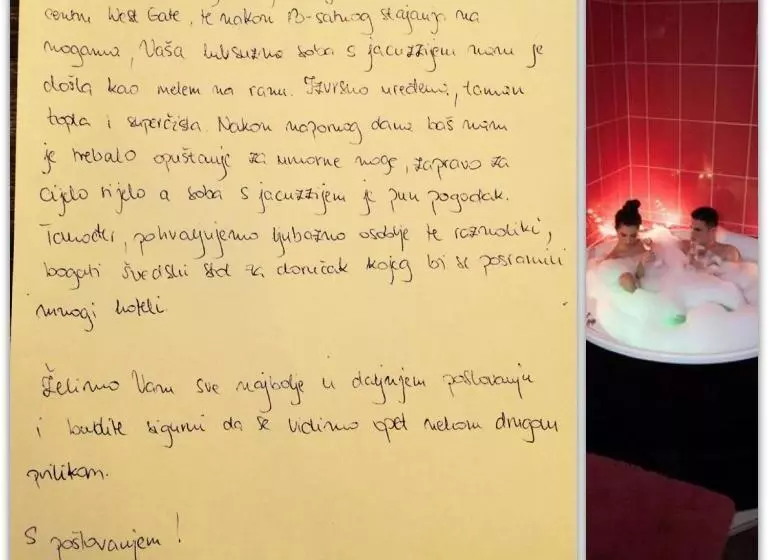 centru West Gate, te nakon 13-satnog stajanja na
nogama, Vaša luksuzna soba s jacuzzijem nam je
došla kao melem na ranu. Izvrsno uređena, taman
topla i superčista. Nakon napornog dana baš nam
je trebalo opuštanje za umorne noge, zapravo za
cijelo tijelo a soba s jacuzzijem je pun pogodak.
Također, pohvaljujemo ljubazno osoblje te raznoliki,
bogati švedski stol za doručak kojeg bi se posramili
mnogi hoteli.
Želimo Vam sve najbolje u daljnjem poslovanju
i budite sigurni da se vidimo opet nekom drugom
prilikom.
S poštovanjem!